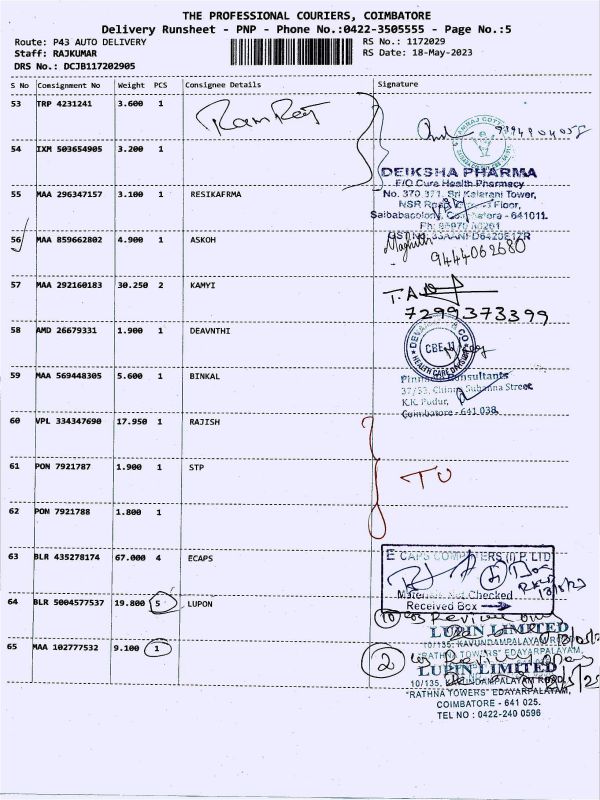 THE PROFESSIONAL COURIERS, COIMBATORE
Delivery Runsheet - PNP - Phone No.:0422-3505555 - Page No.:5
Route: P43 AUTO DELIVERY
Staff: RAJKUMAR
DRS No.: DCJB117202905
RS No.: 1172029
RS Date: 18-May-2023
S No Consignment No Weight PCS Consignee Details Signature
53 TRP 4231241 3.600 1
Ram Raj
54 IXM 503654905 3.200 1
DEIKSHA PHARMA
F/O Cure Health Pharmacy
No. 370 371, Sri Kalarani Tower,
55 MAA 296347157 3.100 1 RESIKAFRMA
NSR Road Floor,
Saibabacolony, Coimbatore - 641011.
56 MAA 859662802 4.900 1 ASKOH
9444062680
57 MAA 292160183 30.250 2 KAMYI
7299373399
58 AMD 26679331 1.900 1 DEAVNTHI
CBE-11
HEALTH CARE DIVISION
59 MAA 569448305 5.600 1 BINKAL
Consultants
37/53, Chinna Subanna Street
K.K. Pudur,
Coimbatore - 641 038.
60 VPL 334347690 17.950 1 RAJISH
61 PON 7921787 1.900 1 STP
TU
62 PON 7921788 1.800 1
63 BLR 435278174 67.000 4 ECAPS
E CAPS COMPUTERS (I) P. LTD
Materials Not Checked
Received Box
64 BLR 5004577537 19.800 5 LUPON
LUPIN LIMITED
10/135, KAVUNDAMPALAYAM ROAD
"RATHNA TOWERS" EDAYARPALAYAM,
65 MAA 102777532 9.100 1
2
LUPIN LIMITED
10/135, KAVUNDAMPALAYAM ROAD,
"RATHNA TOWERS" EDAYARPALAYAM,
COIMBATORE - 641 025.
TEL NO : 0422-240 0596